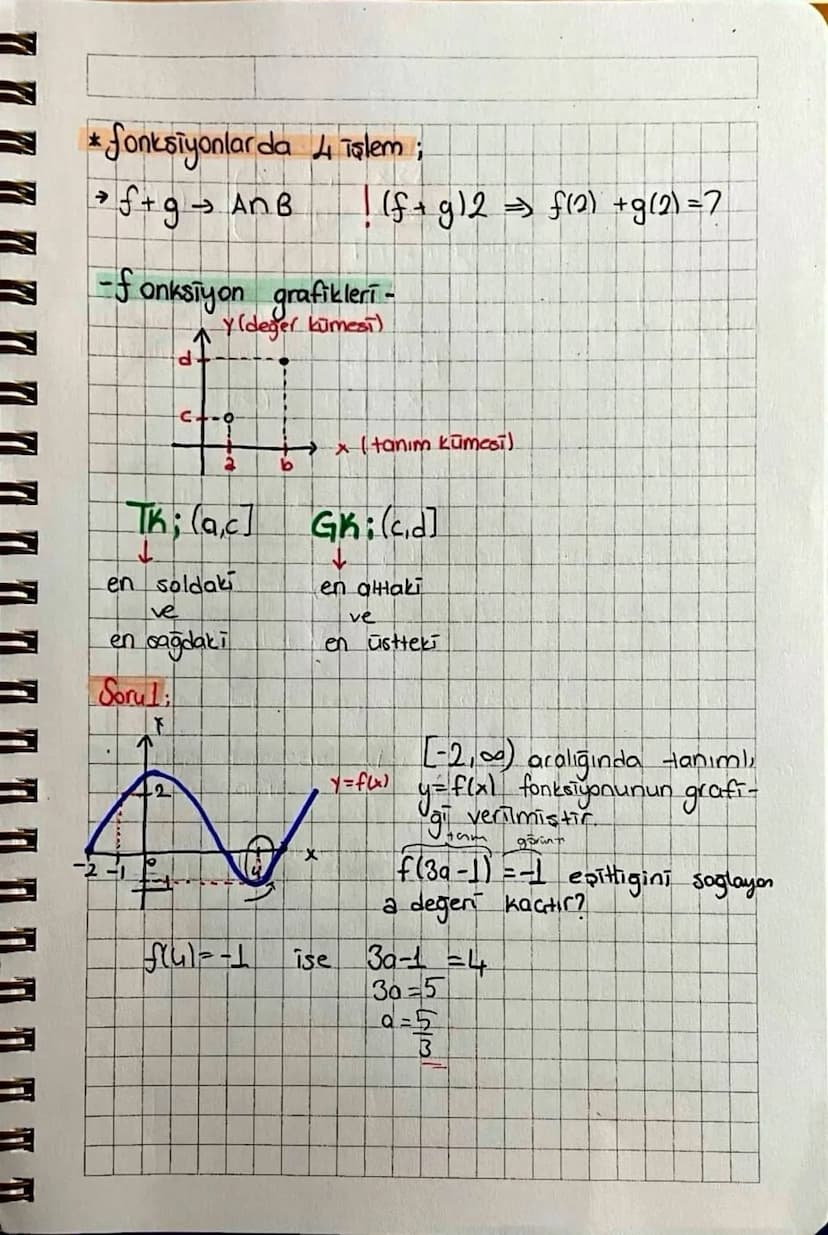 * fonksiyonlarda 4 işlem ;
→ f+g → A∩B ! (f+g)2 ⇒ f(2) +g(2)=?
-fonksiyon grafikleri-
y (değer kümesi)
d
c
a b x (tanım kümesi)
TK; (a,c] GK; (c,d]
↓ ↓
en soldaki en alttaki
ve ve
en sağdaki en üstteki
Soru1;
y
2
y=f(x)
-2 -1 0 4 x
-1
[-2,∞) aralığında tanımlı
y=f(x) fonksiyonunun grafi-
ği verilmiştir.
tanım görünt
f(3a-1) = -1 eşittiğini sağlayan
a değeri kaçtır?
f(4)=-1 ise 3a-1 =4
3a=5
a=5/3